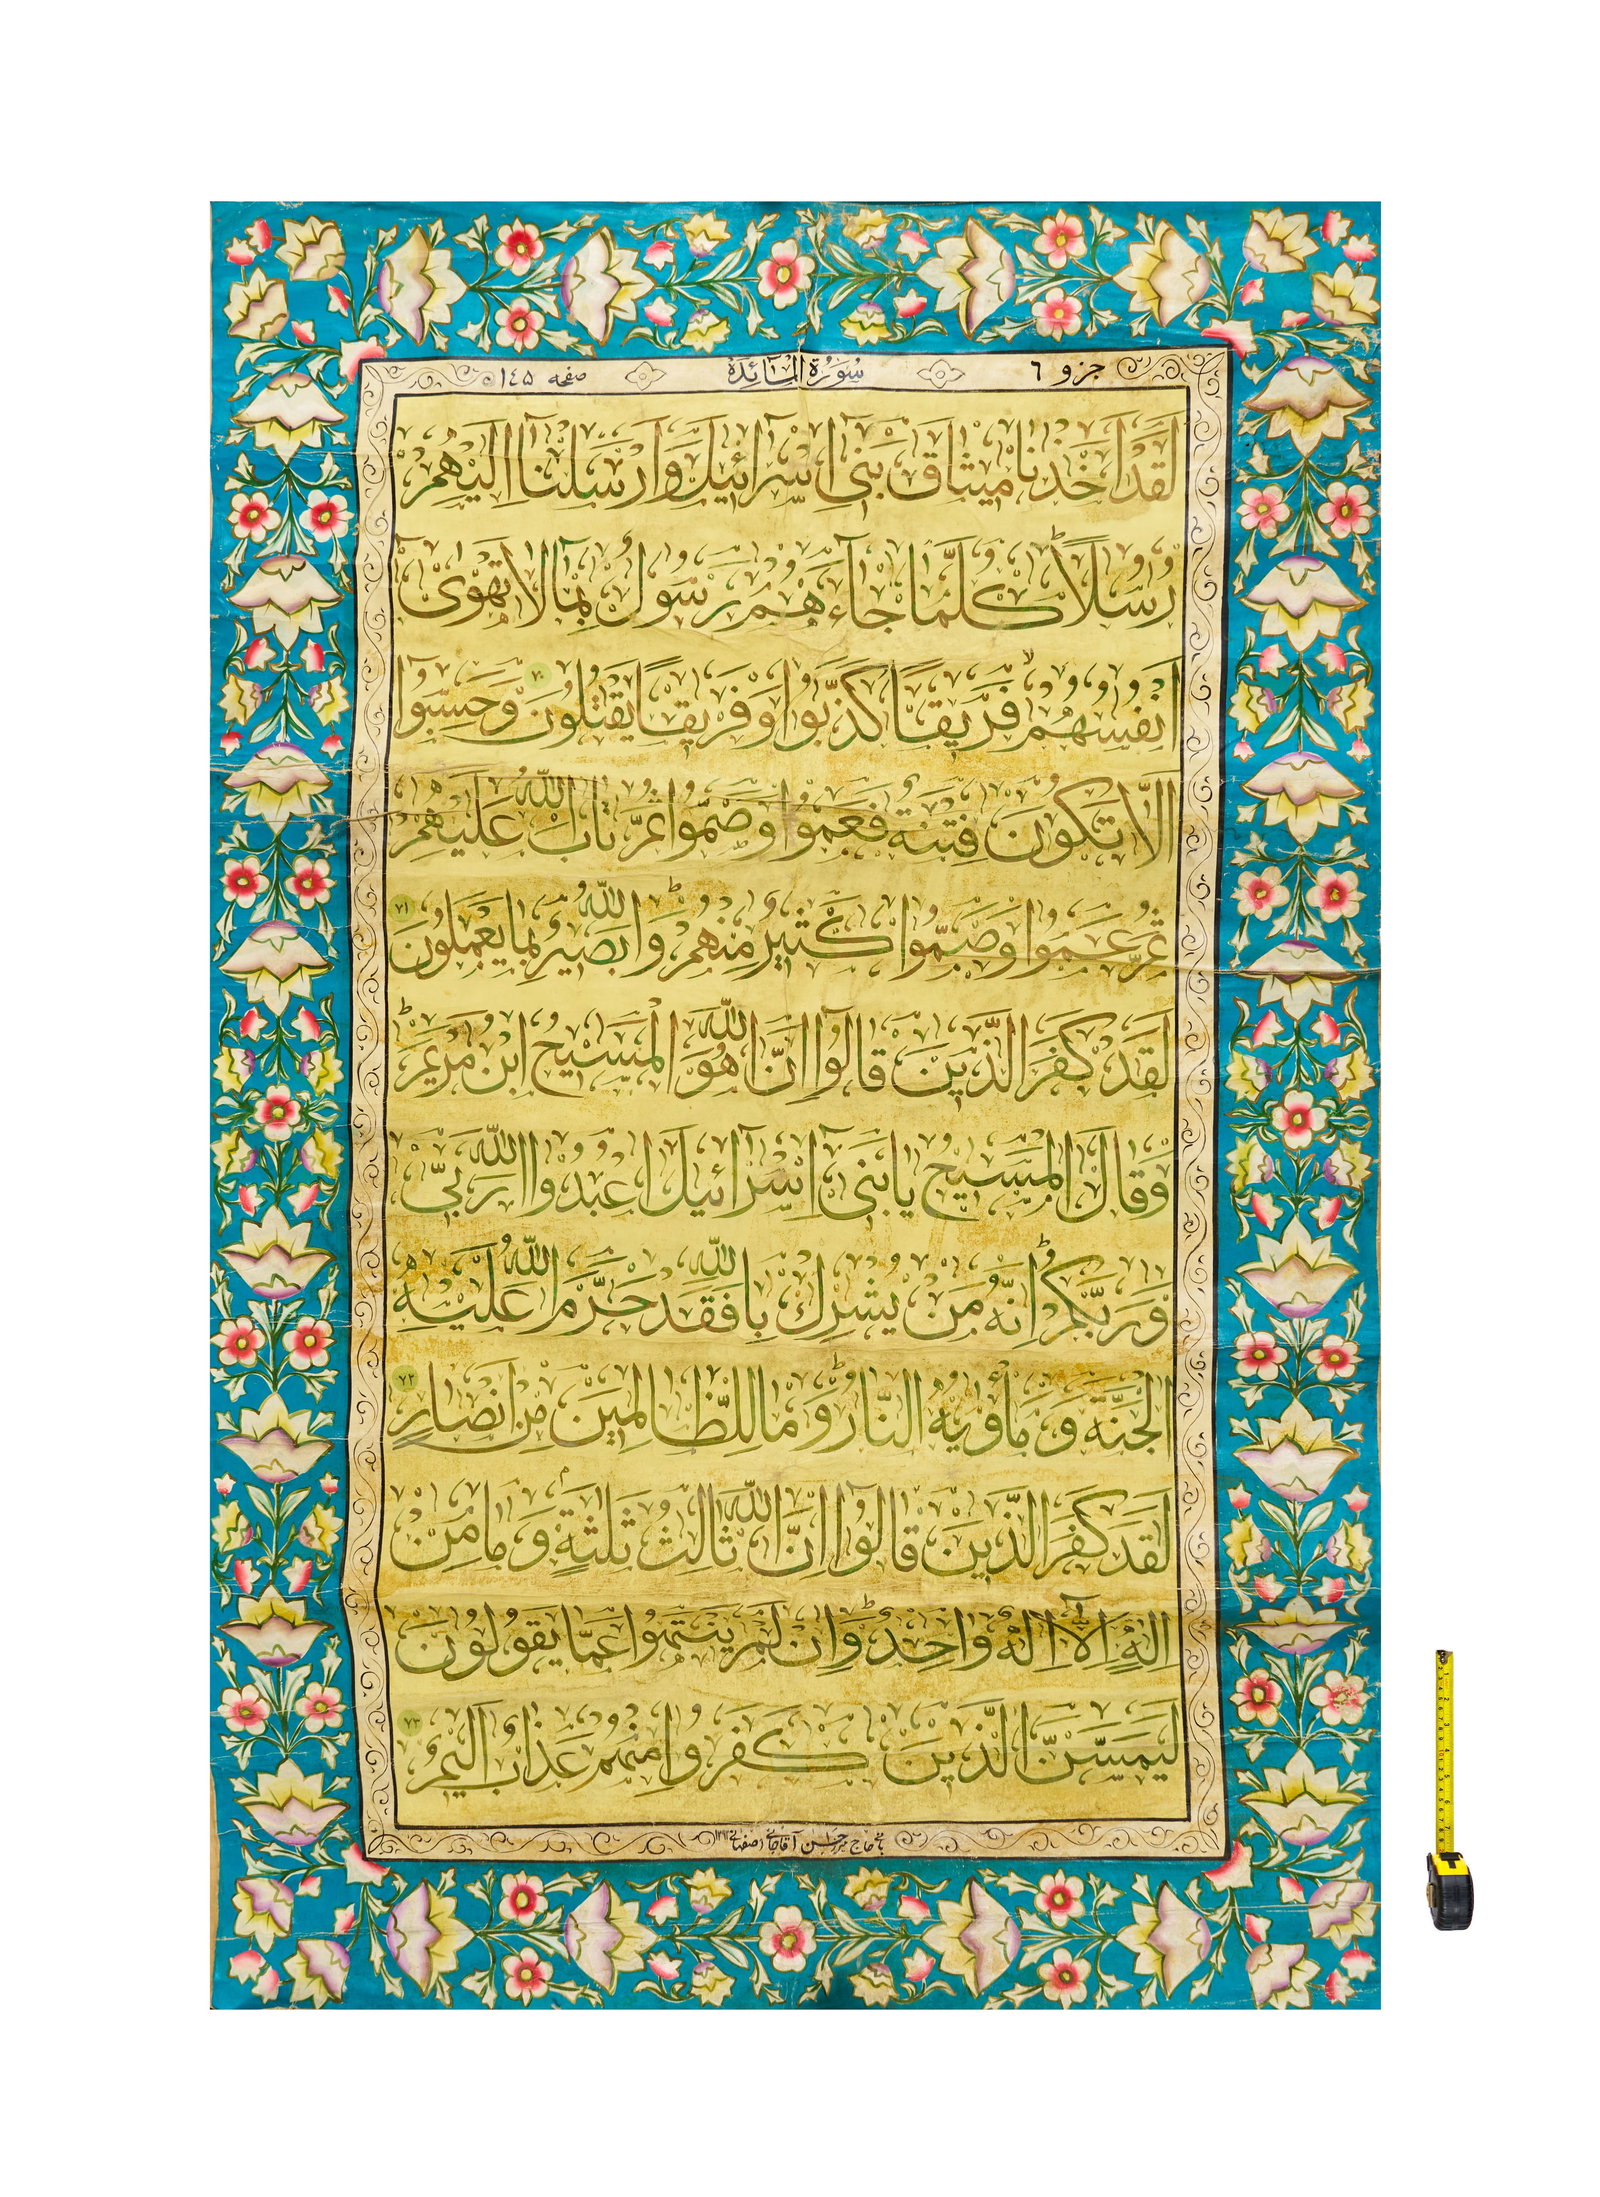 جزو ٦ سُورَةُ المْآئِدَة صفحه ۱۴۵
لَقَدْ اَخَذْنا ميثاقَ بَنى اِسْرآئيلَ وَ اَرْسَلْنآ اِلَيْهِمْ
رُسُلًا كُلَّما جآءَهُمْ رَسُولٌ بِما لا تَهْوىٓ
اَنْفُسُهُمْ فَريقًا كَذَّبُوا وَ فَريقًا يَقْتُلُونَ ٧٠ وَ حَسِبُوٓا
اَلّا تَكُونَ فِتْنَةٌ فَعَمُوا وَ صَمُّوا ثُمَّ تابَ اللّٰهُ عَلَيْهِمْ
ثُمَّ عَمُوا وَ صَمُّوا كَثيرٌ مِنْهُمْ وَ اللّٰهُ بَصيرٌ بِما يَعْمَلُونَ ٧١
لَقَدْ كَفَرَ الَّذينَ قالُوٓا اِنَّ اللّٰهَ هُوَ الْمَسيحُ ابْنُ مَرْيَمَ
وَ قالَ الْمَسيحُ يا بَنىٓ اِسْرآئيلَ اعْبُدُوا اللّٰهَ رَبّى
وَ رَبَّكُمْ اِنَّهُ مَنْ يُشْرِكْ بِاللّٰهِ فَقَدْ حَرَّمَ اللّٰهُ عَلَيْهِ
الْجَنَّةَ وَ مَأْويهُ النّارُ وَ ما لِلظّالِمينَ مِنْ اَنْصارٍ ٧٢
لَقَدْ كَفَرَ الَّذينَ قالُوٓا اِنَّ اللّٰهَ ثالِثُ ثَلٰثَةٍ وَ ما مِنْ
اِلٰهٍ اِلّآ اِلٰهٌ واحِدٌ وَ اِنْ لَمْ يَنْتَهُوا عَمّا يَقُولُونَ
لَيَمَسَّنَّ الَّذينَ كَفَرُوا مِنْهُمْ عَذابٌ اَليمٌ ٧٣
حاج ميرحسن آقاجانى اصفهانى